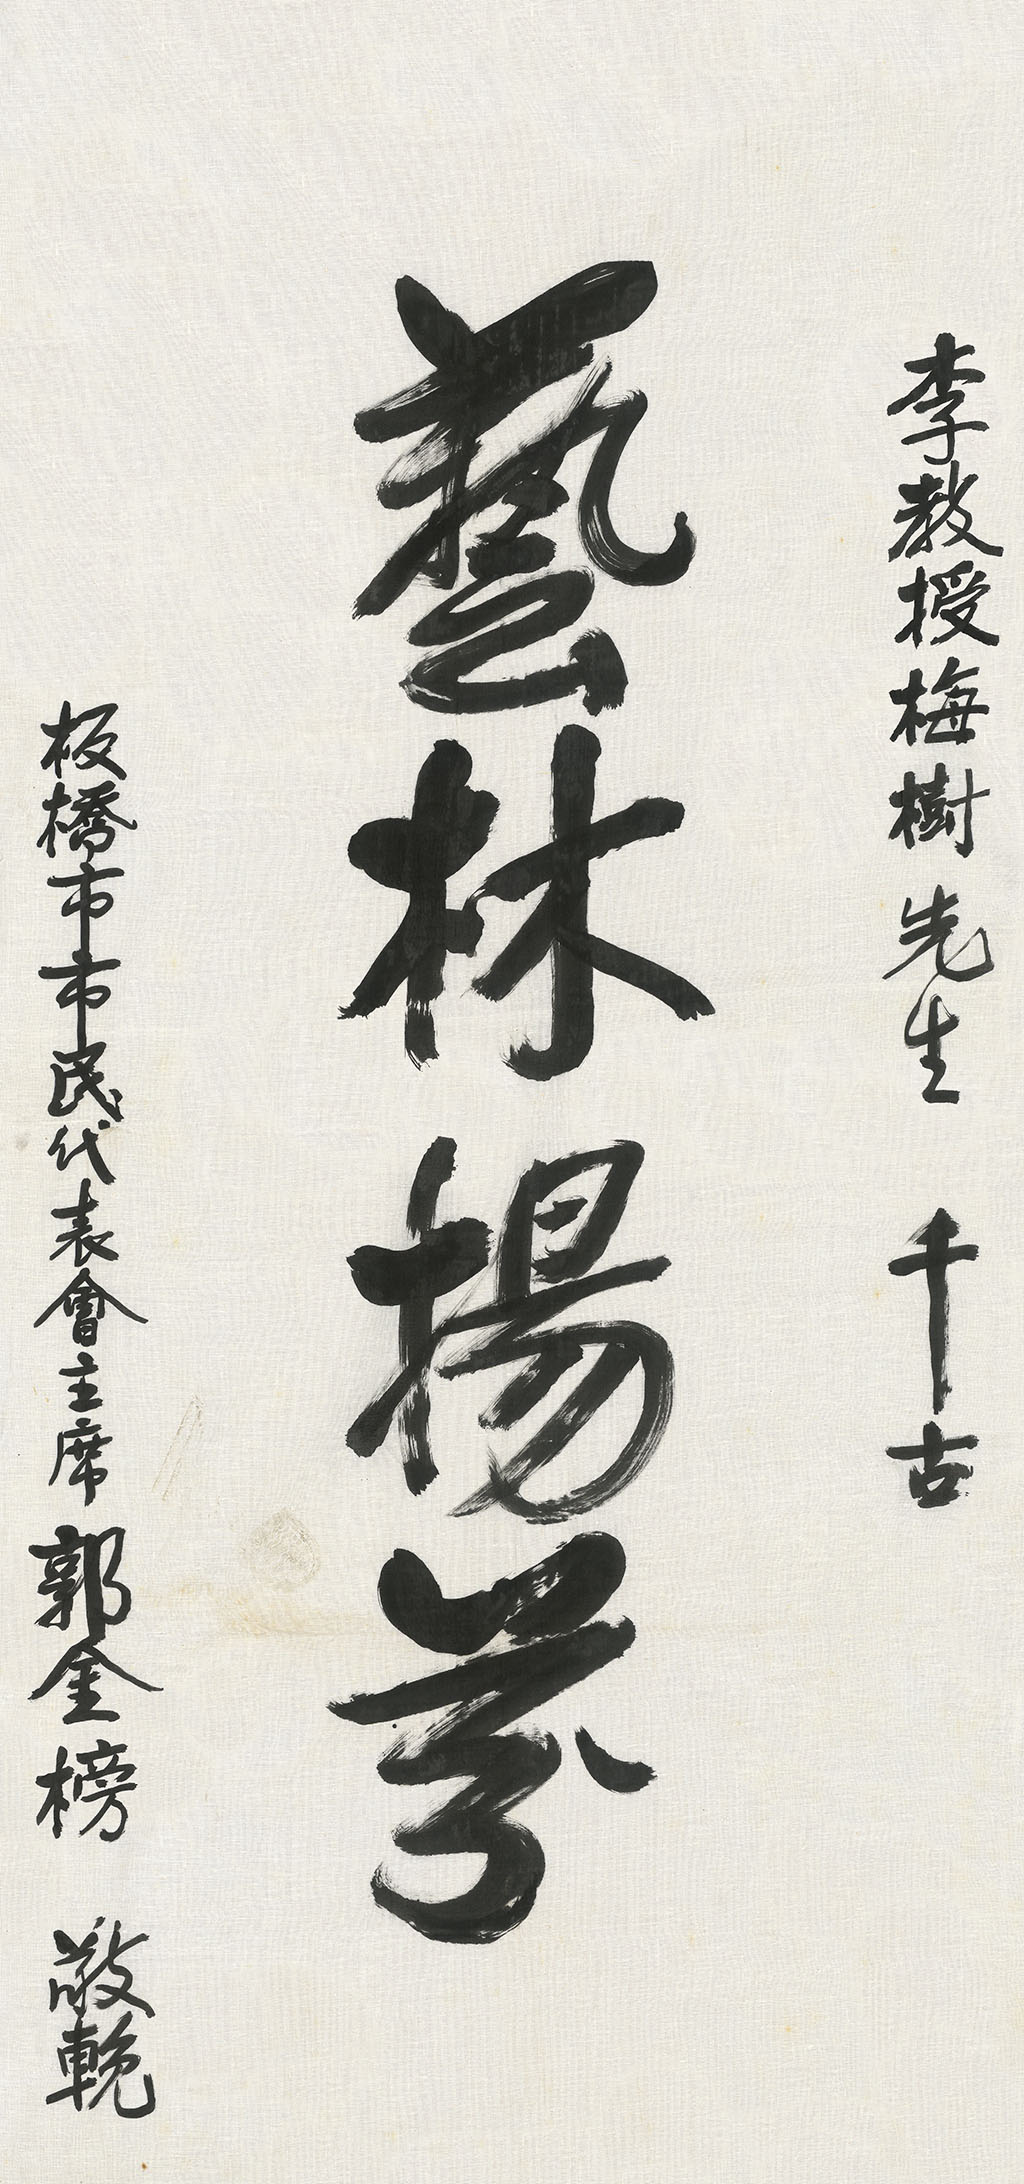 李教授梅樹先生 千古
藝林揚芬
板橋市市民代表會主席 郭金榜 敬輓